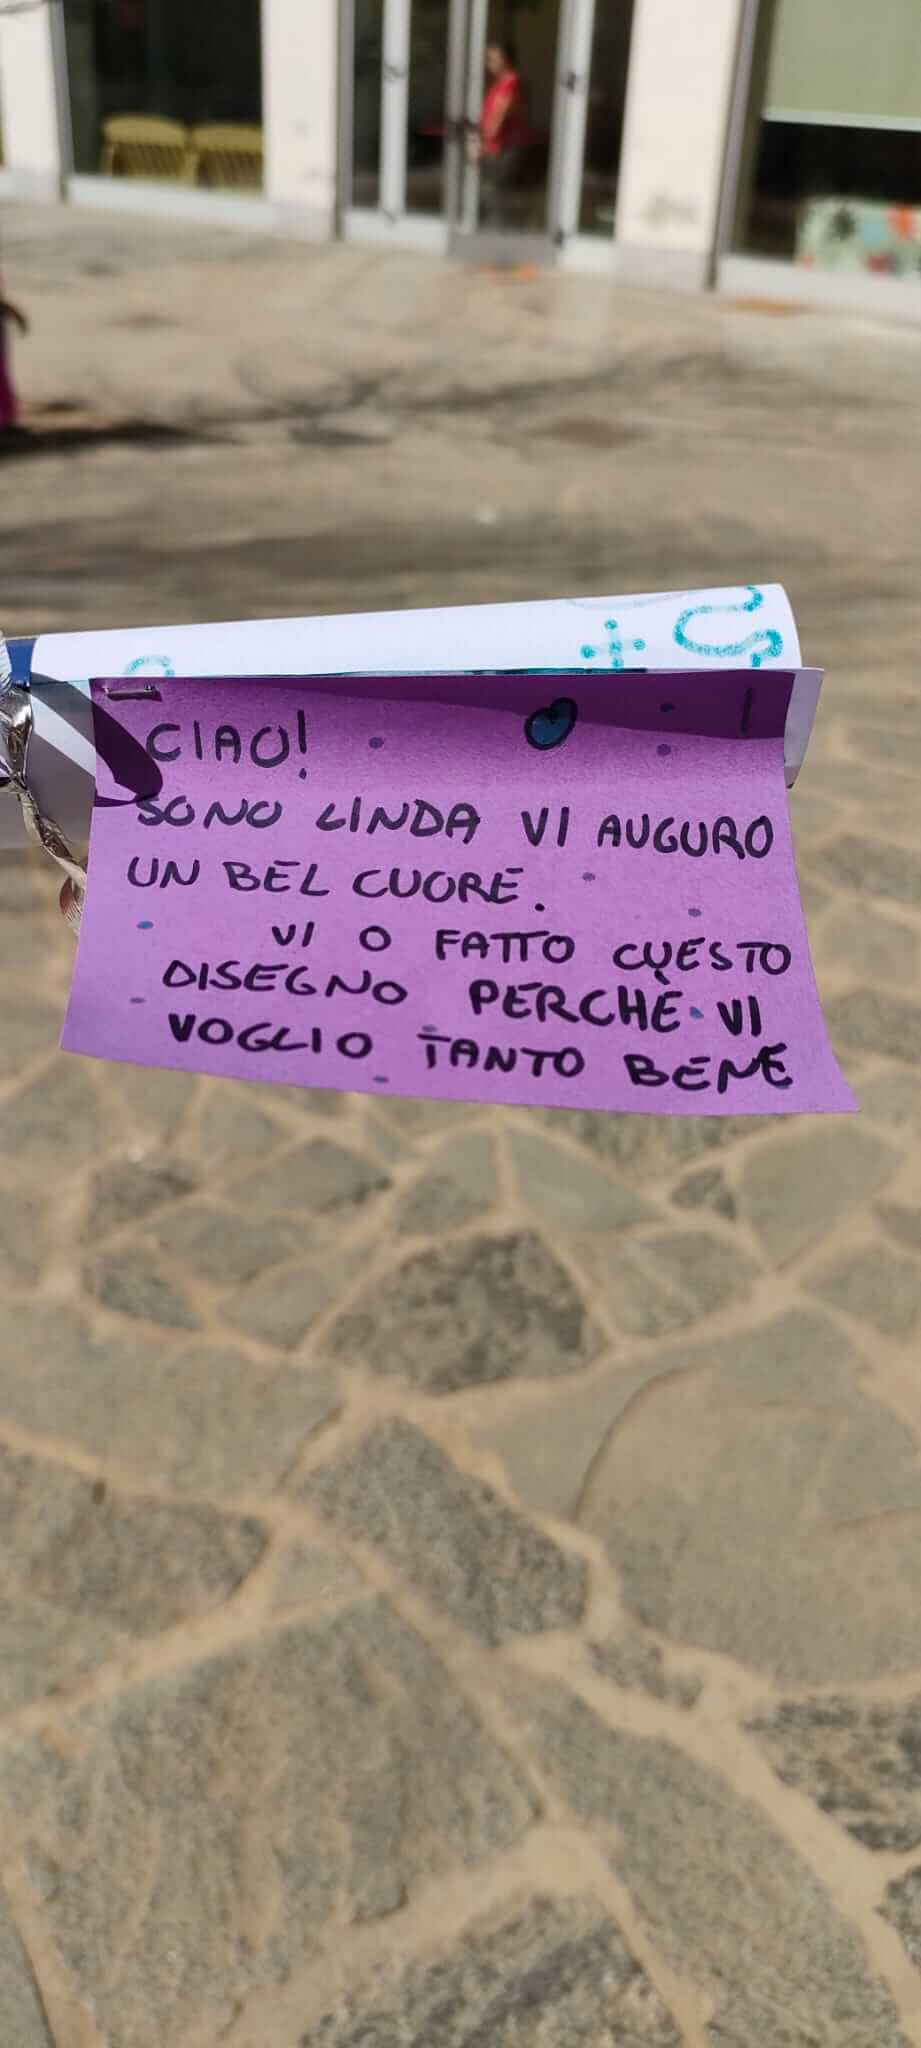 CIAO!
SONO LINDA VI AUGURO
UN BEL CUORE.
VI O FATTO CUESTO
DISEGNO PERCHE VI
VOGLIO TANTO BENE